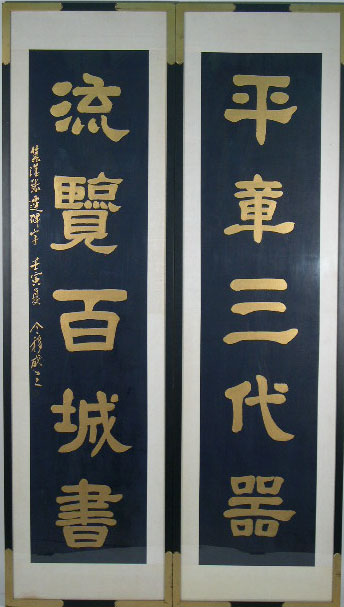 平章三代器
流覽百城書
集漢張遷碑字 壬寅夏